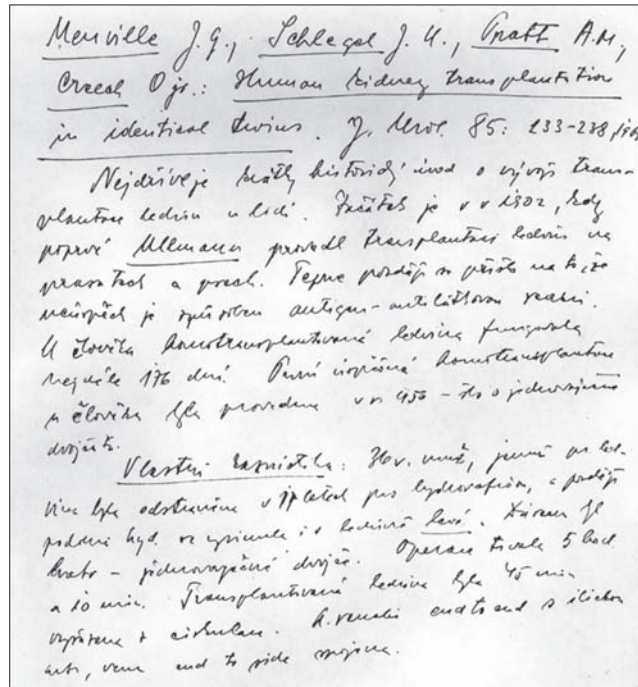 Menville J.G., Schlegel J.U., Pratt A.M.,
Creech O jr.: Human kidney transplantation
in identical twins. J. Urol. 85: 233-238,
Nejdříve je krátký historický úvod o vývoji trans-
plantace ledvin u lidí. Začátek je v r 1902, kdy
poprvé Ullmann provedl transplantaci ledvin na
prasatech a psech. Teprve později se přišlo na to, že
neúspěch je způsoben antigen-antilátkovou reakcí.
U člověka homotransplantovaná ledvina fungovala
nejdéle 176 dní. První úspěšná homotransplantace
u člověka byla provedena v r. - šlo o jednovaječná
dvojčata.
Vlastní kasuistika: muž, jemuž
vina byla odstraněna v letech pro hydronefrosu, a později
podobná hyd. se vyvinula i v ledvině levé. Dárcem byl
bratr - jednovaječné dvojče. Operace trvala 5 hod.
a 10 min. Transplantovaná ledvina byla 45 min
vyřazena z cirkulace. A. renalis end to end s ilickou
art., vena end to side spojena.